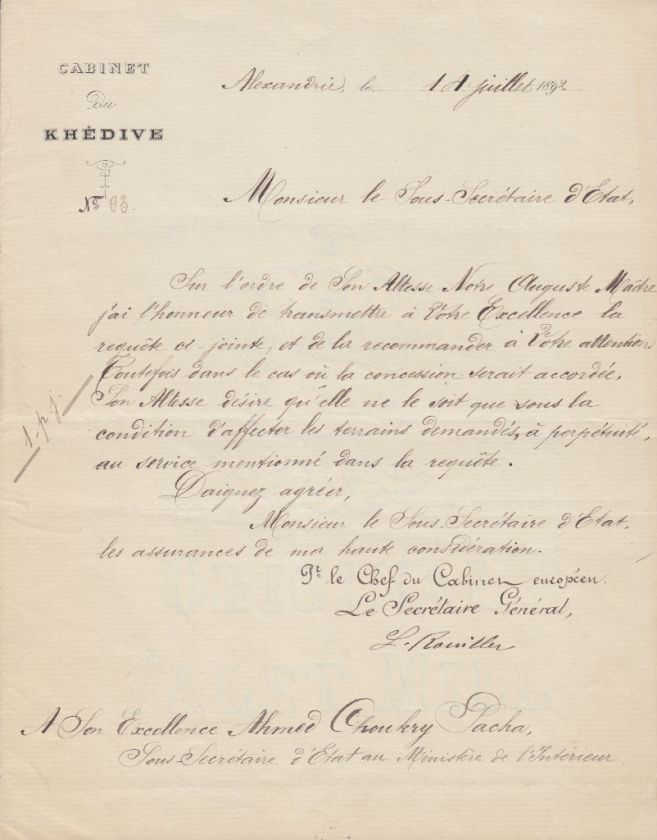 CABINET
du
KHÉDIVE
Nº 83.
Alexandrie, le 14 juillet 1892
Monsieur le Sous-Secrétaire d'Etat,
Sur l'ordre de Son Altesse Notre Auguste Maître
j'ai l'honneur de transmettre à Votre Excellence la
requête ci-jointe, et de la recommander à Votre attention
Toutefois dans le cas où la concession serait accordée,
Son Altesse désire qu'elle ne le soit que sous la
condition d'affecter les terrains demandés, à perpétuité,
au service mentionné dans la requête.
1. p. j.
Daignez agréer,
Monsieur le Sous-Secrétaire d'Etat,
les assurances de ma haute considération.
Pr. le Chef du Cabinet européen.
Le Secrétaire Général,
L. Rouiller
A Son Excellence Ahmed Choukry Pacha,
Sous-Secrétaire d'Etat au Ministère de l'Intérieur